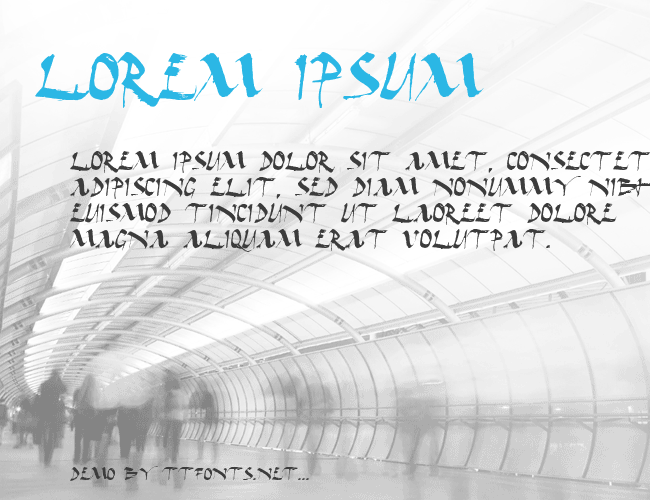 LOREM IPSUM
LOREM IPSUM DOLOR SIT AMET, CONSECTET
ADIPISCING ELIT, SED DIAM NONUMMY NIBH
EUISMOD TINCIDUNT UT LAOREET DOLORE
MAGNA ALIQUAM ERAT VOLUTPAT.
DEMO BY TTFONTS.NET...